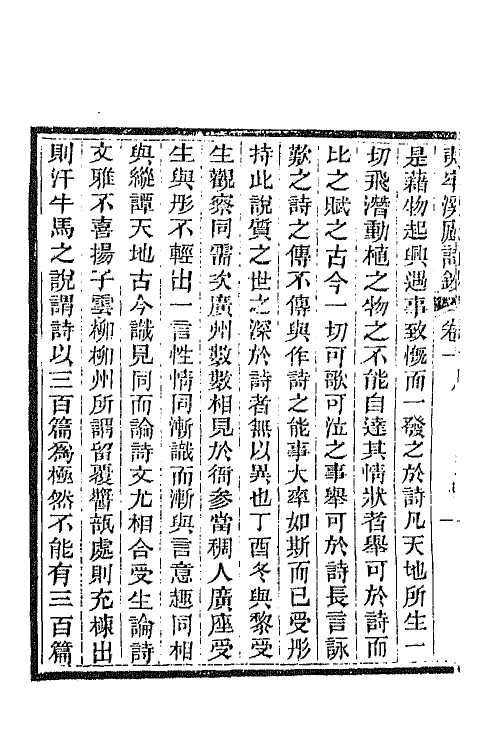 溪廬詩鈔 卷一
是藉物起興遇事致慨而一發之於詩凡天地所生一
切飛潛動植之物之不能自達其情狀者舉可於詩而
比之賦之古今一切可歌可泣之事舉可於詩長言詠
歎之詩之傳不傳與作詩之能事大率如斯而已受彤
持此說質之世之深於詩者無以異也丁酉冬與黎受
生觀察同需次廣州數數相見於衙參當稠人廣座受
生與彤不輕出一言性情同漸識而漸與言意趣同相
與縱譚天地古今識見同而論詩文尤相合受生論詩
文雅不喜揚子雲柳柳州所謂留覆醬瓿處則充棟出
則汗牛馬之說謂詩以三百篇為極然不能有三百篇